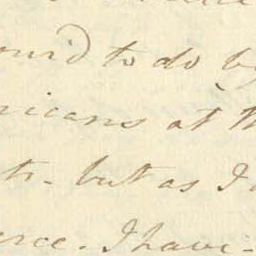 to do by
icans at th
ts. but as I
ence. I have -